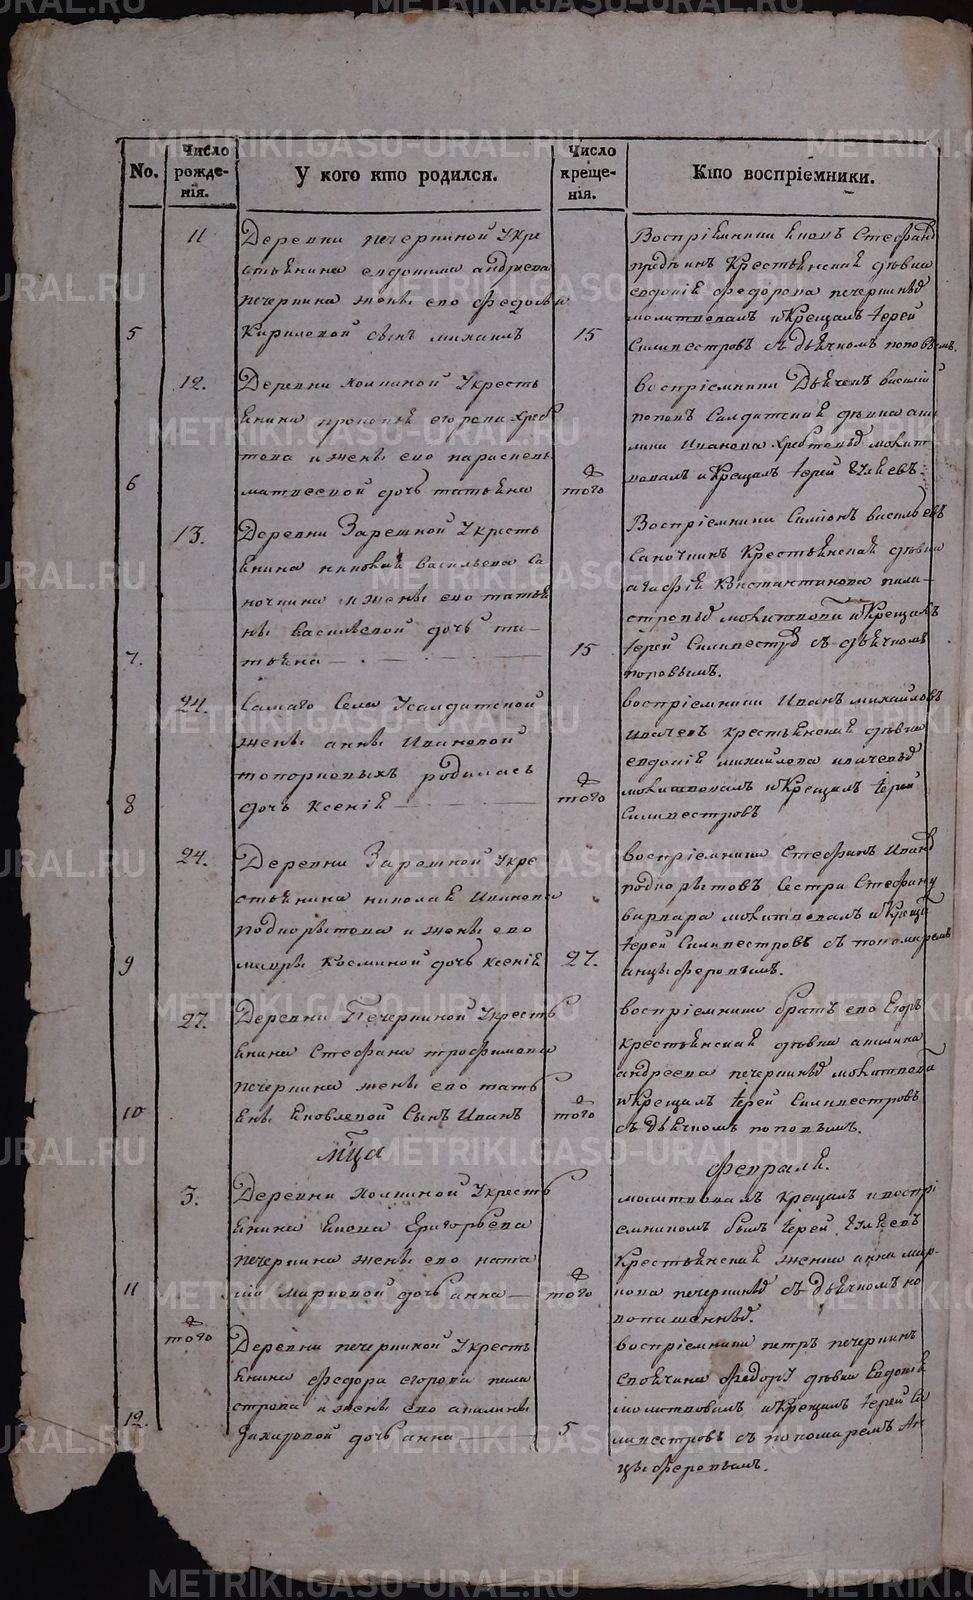 METRIKI.GASO-URAL.RU
No.
Число рожде-нія.
У кого кто родился.
Число креще-нія.
Кто воспріемники.
11
Деревни печеркиной Укре
стьянина евдокима андреева
печеркина жены его федосьи
5
Кириловой сынъ михаилъ
15
Воспріемники
Крестьянская дѣвка
евдокія федорова печеркиныхъ
молитвовалъ и крещалъ іерей
Силивестровъ съ дьячкомъ поповымъ.
12.
Деревни холкиной Укресть
янина прокопья егорова хреб
това и жены его парасковьи
6
матвеевой дочь татьяна
того
воспріемники Дьячекъ василій
поповъ Салдатская дѣвка аку
лина Иванова хребтовыхъ молит
вовалъ и крещалъ іерей
13.
Деревни Зарешной Укресть
янина николая васильева Са
почкина и жены его татья
ны васильевой дочь та-
7.
тьяна
15
Воспріемники Симіонъ васильевъ
Сапочкинъ Крестьянская дѣвка
агафія Константинова пали-
строва молитвовалъ и крещалъ
іерей Силивестровъ съ дьячкомъ
поповымъ.
24.
Самаго Села Усалдатской
жены анны Ивановой
топорковыхъ родилась
8
дочь Ксенія
того
воспріемники Иванъ михайловъ
крестьянская дѣвка
евдокія михайлова
молитвовалъ и крещалъ іерей
Силивестровъ
24.
Деревни Зарешной Укре
стьянина николая Иванова
подкорытова и жены его
9
мавры Косминой дочь Ксенія
27.
воспріемники Стефанъ Ивановъ
подкорытовъ Сестра Стефану
варвара молитвовалъ и крещалъ
іерей Силивестровъ съ пономаремъ
анцыферовымъ.
27.
Деревни Печеркиной Укресть
янина Стефана трофимова
печеркина жены его тать
10
яны яковлевой Сынъ Иванъ
того
воспріемники братъ его Егоръ
крестьянская дѣвка акилина
андреева печеркиныхъ молитвовалъ
и крещалъ іерей Силивестровъ
съ дьячкомъ поповымъ.
мца
февраля.
3.
Деревни холкиной Укресть
янина якова Григорьева
печеркина жены его ната
11
ліи марковой дочь анна
того
молитвовалъ крещалъ и воспрі
емникомъ былъ іерей
Крестьянская женка анна мар
кова печеркиныхъ съ дьячкомъ
того
Деревни печеркиной Укресть
янина федора егорова пали
строва и жены его акилины
12.
Захаровой дочь анна
5
воспріемники петръ печеркинъ
федору дѣвка Евдокія
молитвовалъ и крещалъ іерей Си
ливестровъ съ пономаремъ Ан
цыферовымъ.